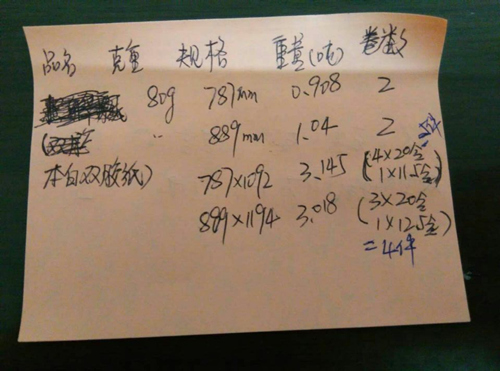 品名 克重 规格 重量(吨) 卷数
80g 787mm 0.908 2
〃 889mm 1.04 2
本白双胶纸) 787×1092 3.145 (4×20令
1×11.5令)
889×1194 3.018 (3×20令
1×12.5令)
=4件